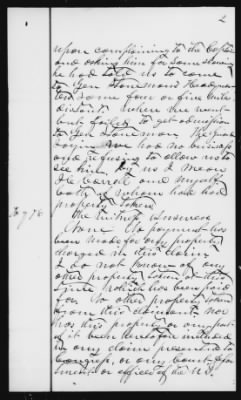 2
upon complaining to the
and asking him for some
he had told us to come
to Gen Stoneman's Headquar
ters some four or five miles
distant. Where we went
but failed to get admission
to Gen Stoneman. The guard
saying we had no business
and refusing to allow us to
see him. By us I mean
and myself
both of whom had had
property taken
The witness answers
None. No payment has
been made for any property
charged in this claim.
I do not know of any
other property taken at this
time which has been paid
for. No other property taken
from this claimant. Nor
has this property or any part
of it been heretofore included
in any claim presented to
Congress, or any Court, De
partment or officer of the U.S.